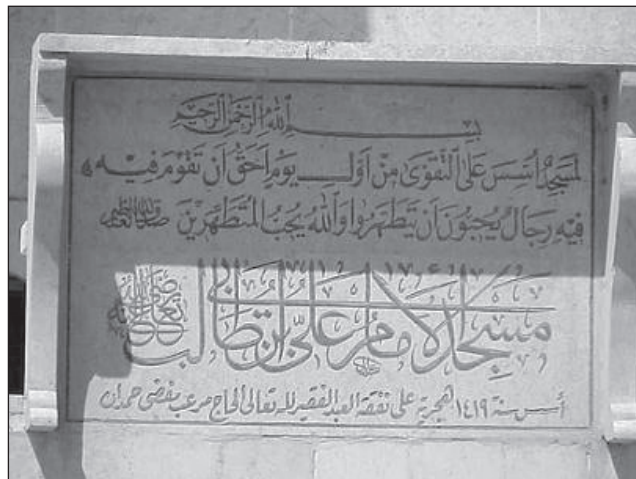 بِسْمِ اللهِ الرَّحْمٰنِ الرَّحِيْمِ
لَمَسْجِدٌ أُسِّسَ عَلَى التَّقْوَىٰ مِنْ أَوَّلِ يَوْمٍ أَحَقُّ أَن تَقُوْمَ فِيْهِ
فِيْهِ رِجَالٌ يُحِبُّوْنَ أَن يَتَطَهَّرُوْا وَاللهُ يُحِبُّ الْمُتَطَهِّرِيْنَ صدق الله العظيم
مسجد الإمام علي ابن أبي طالب
أسس سنة ١٤١٩ هجرية على نفقة العبد الفقير لله تعالى الحاج مرعب حمدان